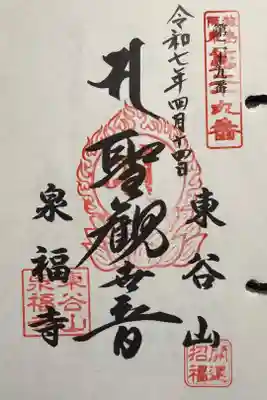 第二十九番
令和七年四月十四日
東谷山
札聖観世音
泉福寺
東谷山
泉福寺
開運
招福